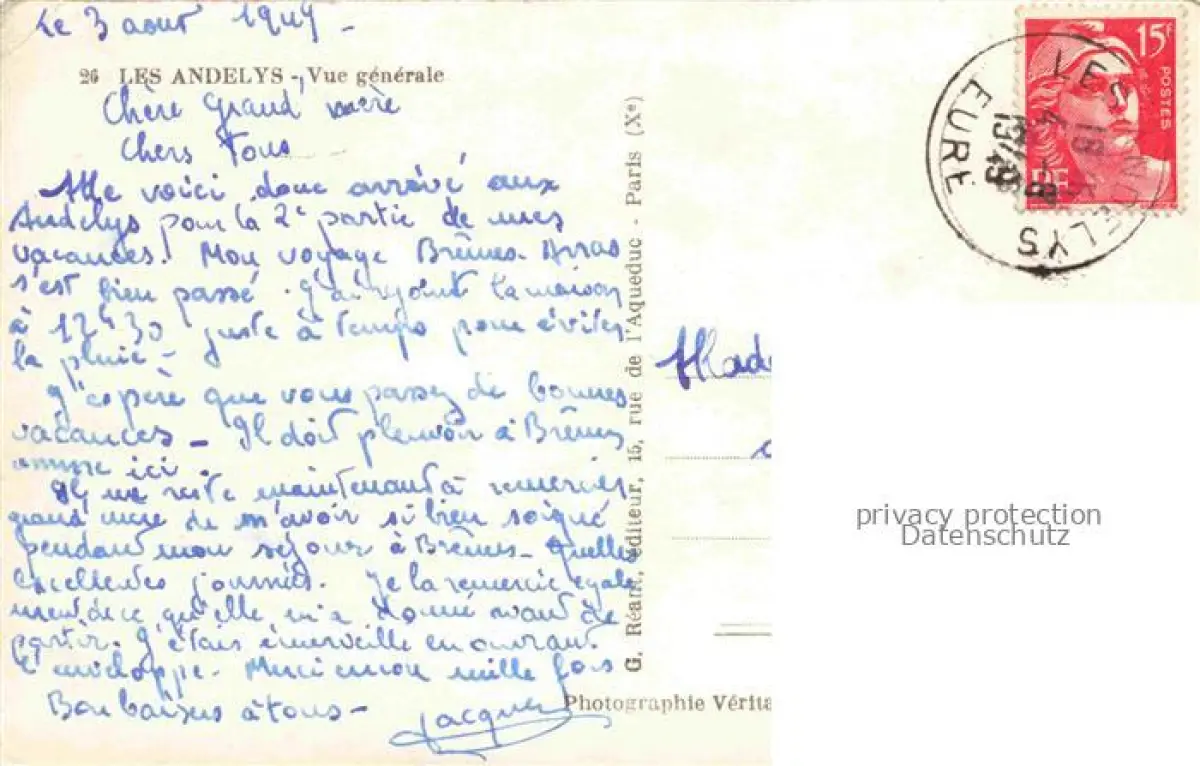 Le 3 aout 1949 -
26 LES ANDELYS - Vue générale
Chère Grand' mère
Chers Tous
Me voici donc arrivé aux
Andelys pour la 2e partie de mes
vacances. Mon voyage Brêmes-Arras
s'est bien passé. J'ai rejoint la maison
à 12h30 juste à temps pour éviter
la pluie -
J'espère que vous passez de bonnes
vacances - Il doit pleuvoir à Brêmes
comme ici.
Il me reste maintenant à remercier
grand mère de m'avoir si bien soigné
pendant mon séjour à Brêmes - Quelles
excellentes journées. Je la remercie égale
ment de ce qu'elle m'a donné avant de
partir. J'étais émerveillé en ouvrant
l'enveloppe. Merci encore mille fois
Bons baisers à tous -
Jacques
G. Réant, éditeur, 15, rue de l'Aqueduc - Paris (Xe)
Photographie Vérita
15F
POSTES
RF
LES ANDELYS
EURE
1949
Mad
privacy protection
Datenschutz